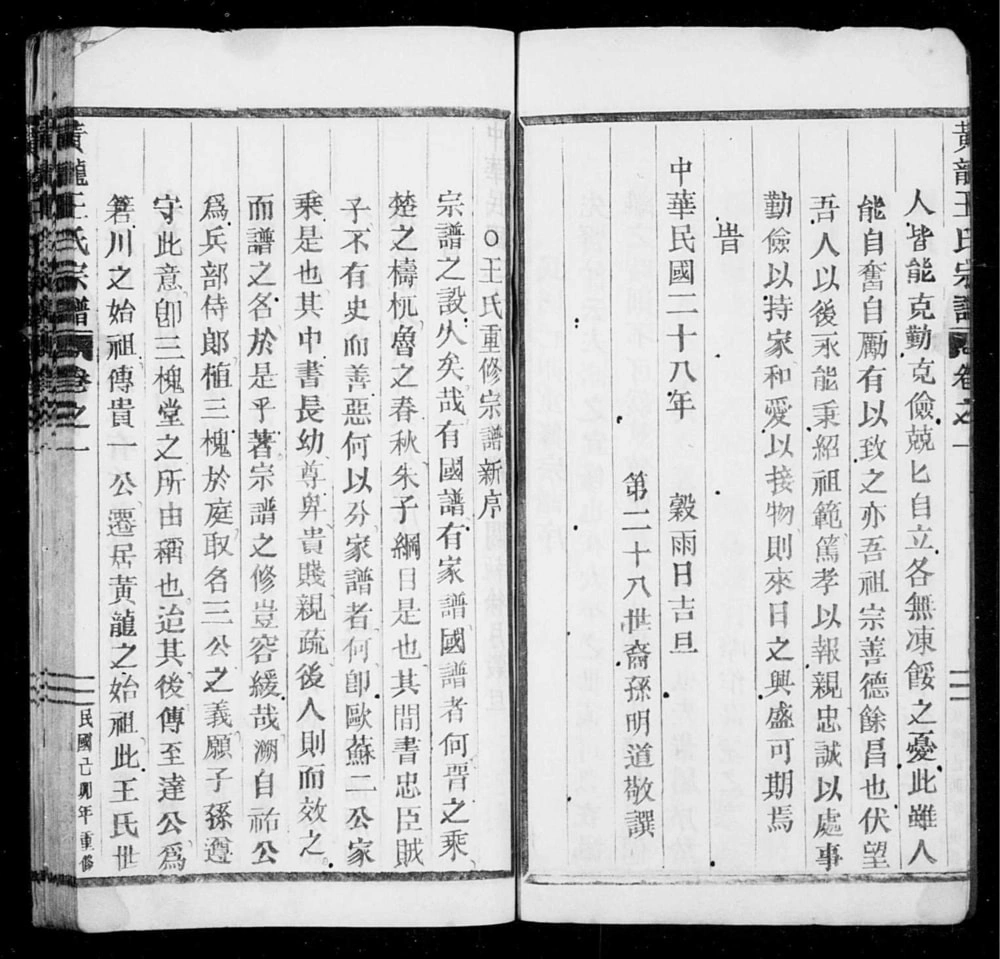 黃龍王氏宗譜 卷之一
人皆能克勤克儉兢匕自立各無凍餒之憂此雖人
能自奮自勵有以致之亦吾祖宗善德餘昌也伏望
吾人以後永能秉紹祖範篤孝以報親忠誠以處事
勤儉以持家和愛以接物則來日之興盛可期焉
旹
中華民國二十八年 穀雨日吉旦
第二十八世裔孫明道敬譔
○王氏重修宗譜新序
宗譜之設久矣哉有國譜有家譜國譜者何晋之乘
楚之檮杌魯之春秋朱子綱目是也其間書忠臣賊
子不有史而善惡何以分家譜者何卽歐蘇二公家
乘是也其中書長幼尊卑貴賤親疏後人則而效之
而譜之名於是乎著宗譜之修豈容緩哉溯自祐公
爲兵部侍郎植三槐於庭取名三公之義願子孫遵
守此意卽三槐堂之所由稱也迨其後傳至達公爲
箬川之始祖傳貴一公遷居黃龍之始祖此王氏世
黃龍王氏宗譜 卷之一
民國己卯年重修